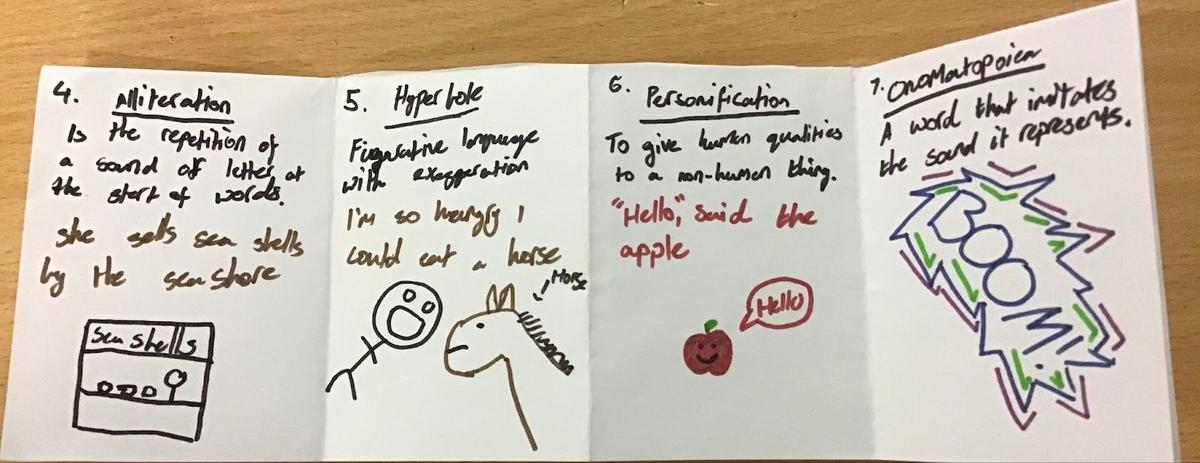 4. Alliteration
Is the repetition of
a sound of letter at
the start of words.
she sells sea shells
by the sea shore
sea shells
5. Hyperbole
Figurative language
with exaggeration
I'm so hungry I
could eat a horse
Horse
6. Personification
To give human qualities
to a non-human thing.
"Hello," said the
apple
Hello
7. Onomatopoiea
A word that imitates
the sound it represents.
BOOM!